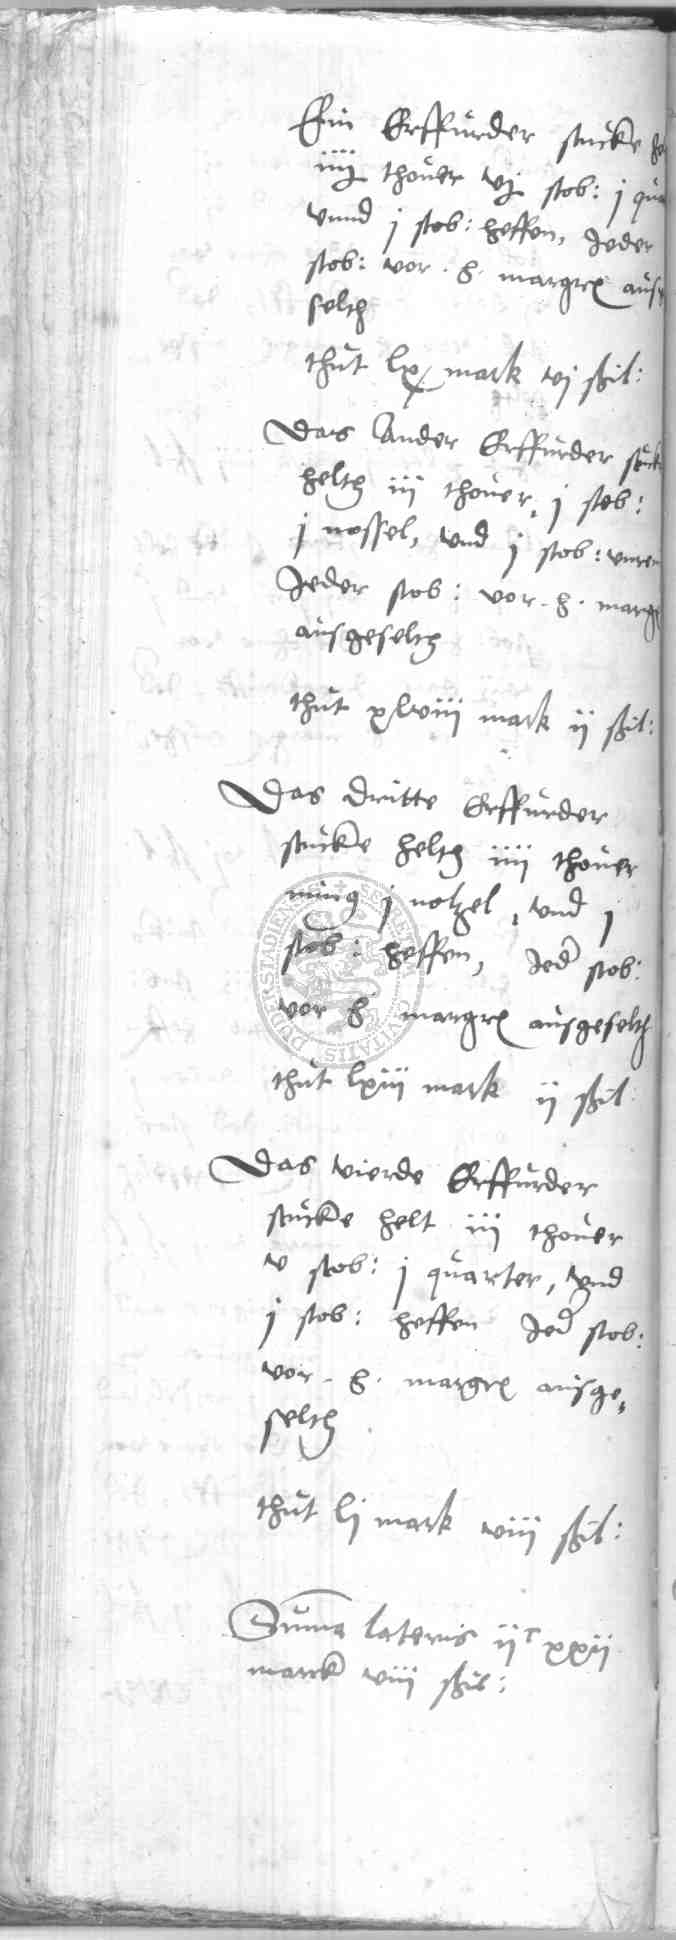 Ein Erffurder stucke he
iiij thouer vj stob: j qua
vnnd j stob: heffen, Jeder
stob: vor .h. margrx aus
selth
thut lx mark vj ßil:
Das Ander Erffurder stuck
helth iij thouer, j stob:
j nossel, vnd j stob: vnrei
Jeder stob: vor .h. marg
ausgeselth
thut xlviii mark ij ßil:
Das dritte Erffurder
stucke helth iiij thouer
j notzel, vnd j
stob: heffen, Jed stob:
vor h margrx ausgeselth
thut lxiij mark ij ßil:
Das vierde Erffurder
stucke helt iij thouer
v stob: j quarter, vnd
j stob: heffen Jed stob:
vor .h. margrx ausge,
selth
thut lj mark viij ßil:
Suma lateris ijc xxij
marck viij ßil:
SECRETVM CIVITATIS DUDERSTADIENSIS